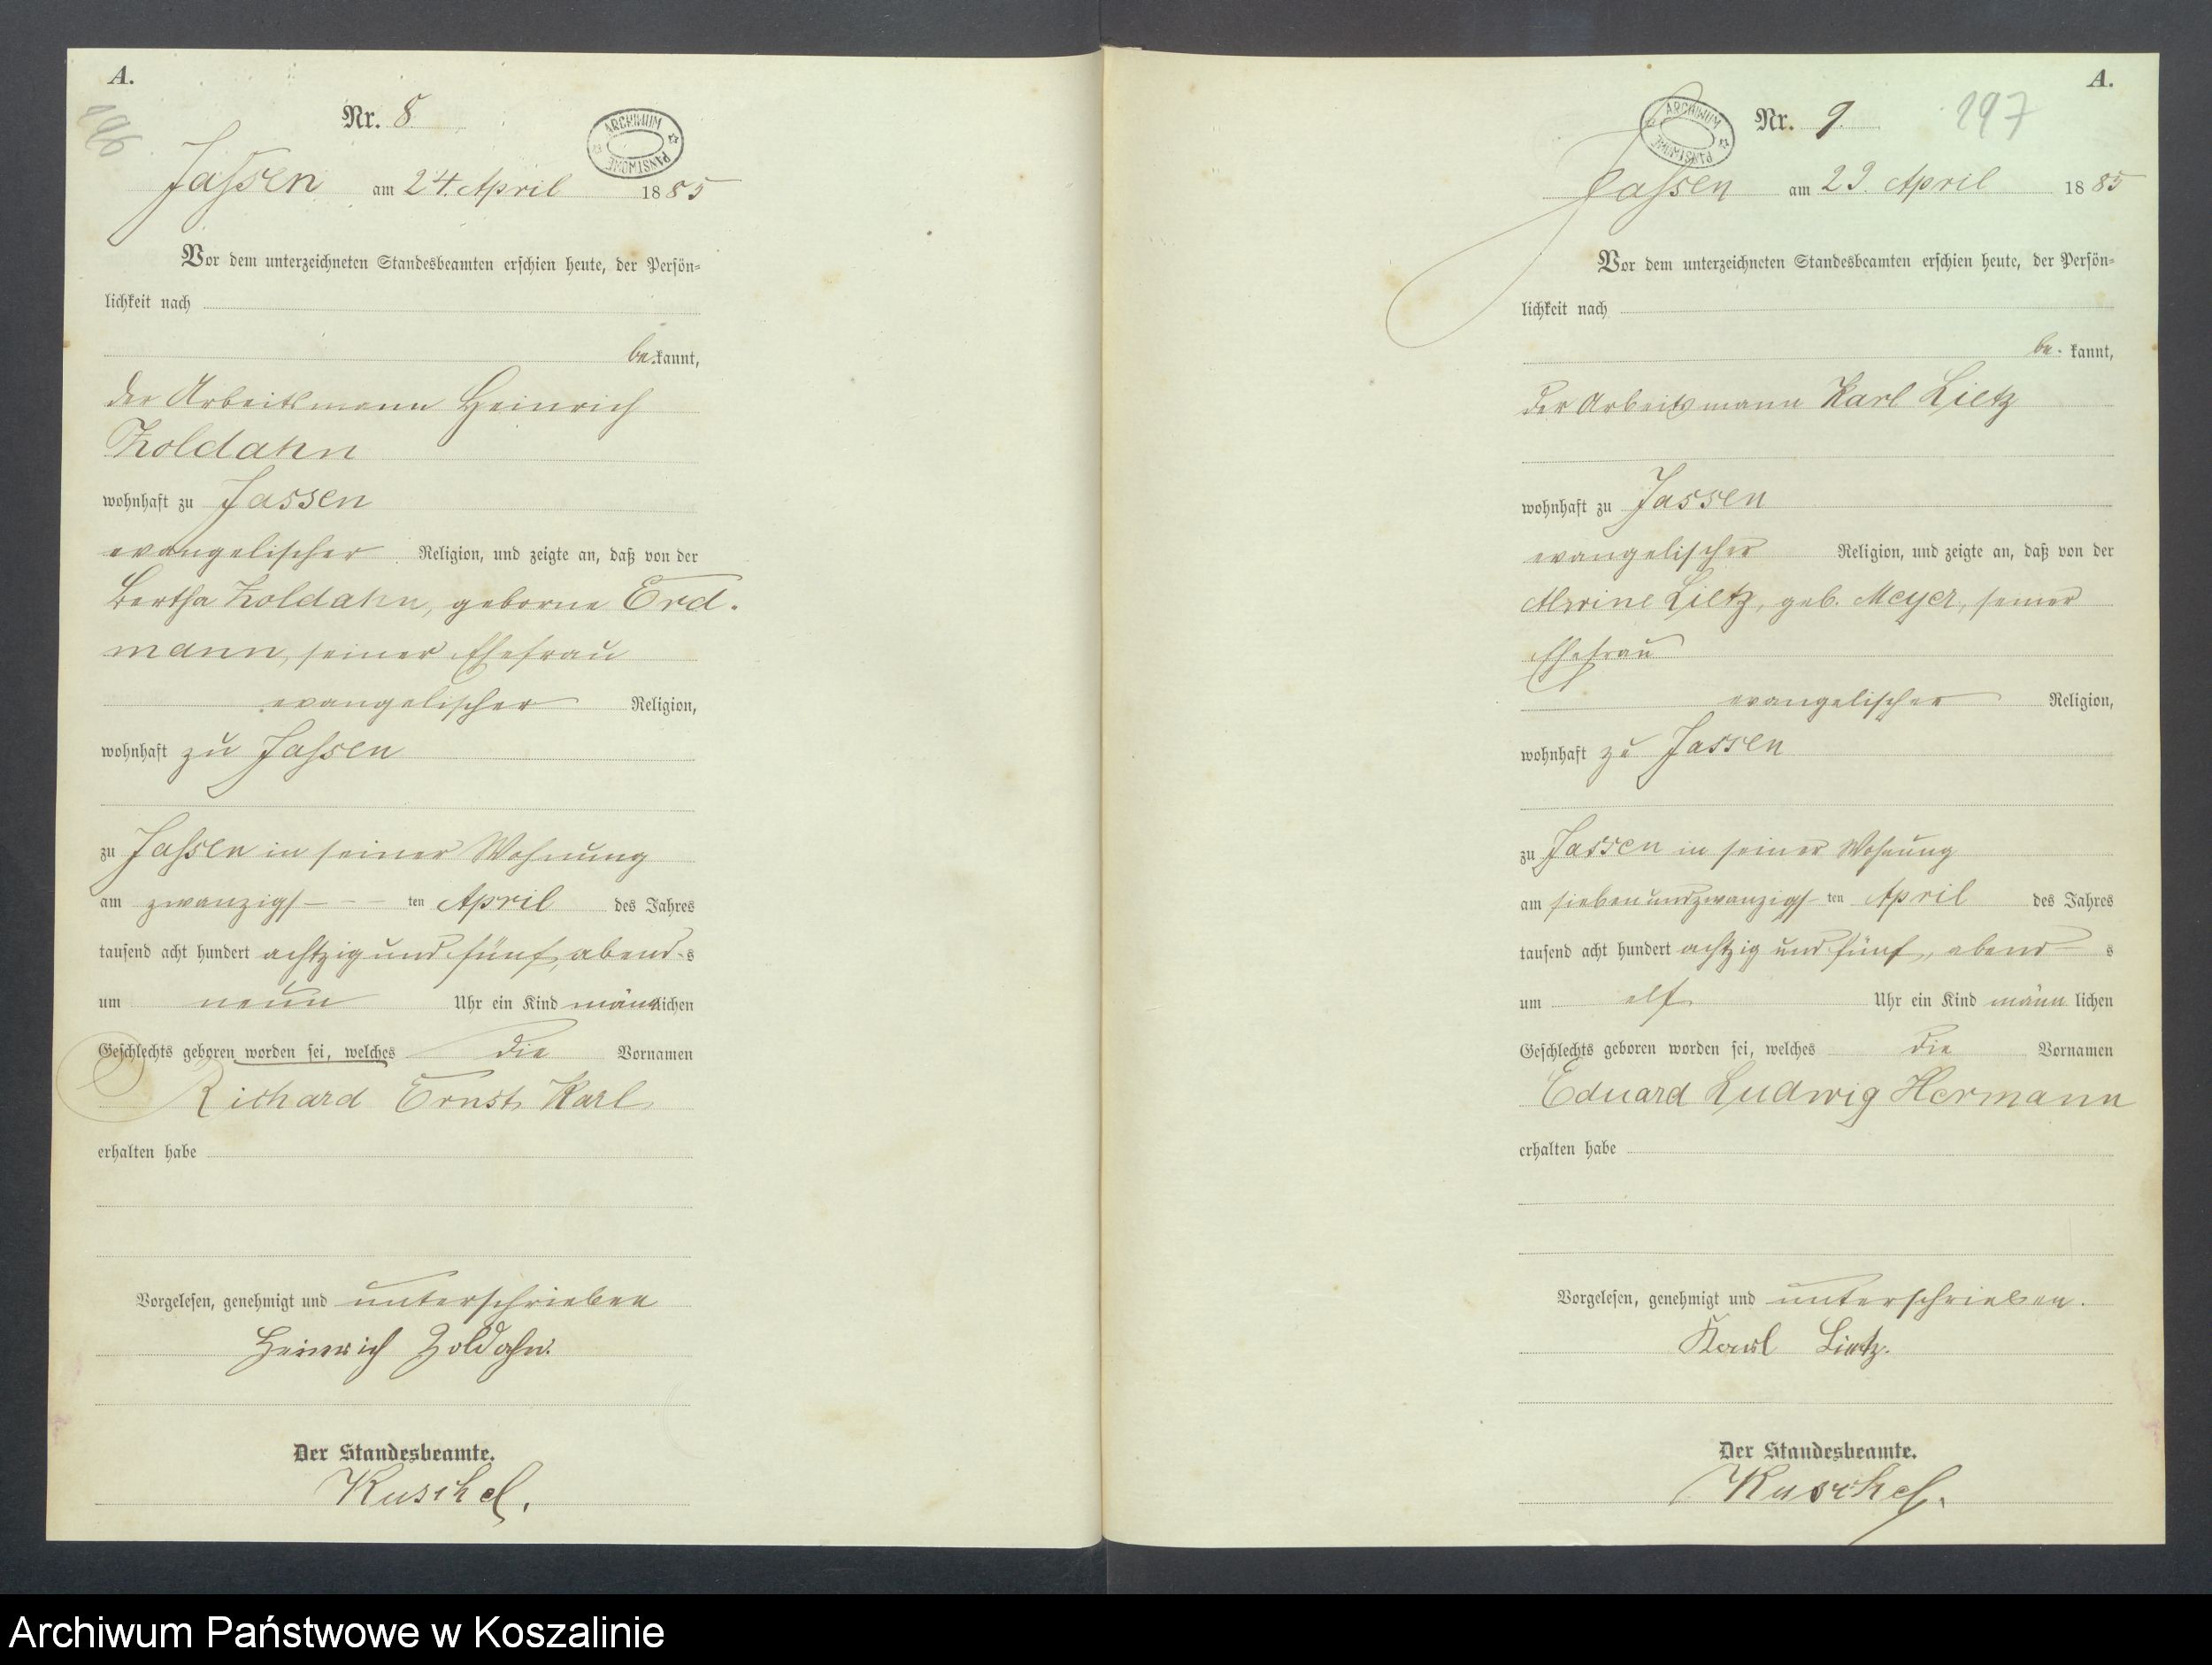 A.
196
Nr. 8
ARCHIWUM PAŃSTWOWE
Jassen am 24. April 1885
Vor dem unterzeichneten Standesbeamten erschien heute, der Persön=
lichkeit nach
be kannt,
der Arbeitsmann Heinrich
Zoldahn
wohnhaft zu Jassen
evangelischer Religion, und zeigte an, daß von der
Bertha Zoldahn, geborne Erd-
mann, seiner Ehefrau
evangelischer Religion,
wohnhaft zu Jassen
zu Jassen in seiner Wohnung
am zwanzigs- - - ten April des Jahres
tausend acht hundert achtzig und fünf, abend-s
um neun Uhr ein Kind männlichen
Geschlechts geboren worden sei, welches die Vornamen
Richard Ernst Karl
erhalten habe
Vorgelesen, genehmigt und unterschrieben
Heinrich Zoldahn.
Der Standesbeamte.
Kuschel.
A.
197
Nr. 9.
ARCHIWUM PAŃSTWOWE
Jassen am 29. April 1885
Vor dem unterzeichneten Standesbeamten erschien heute, der Persön=
lichkeit nach
be- kannt,
der Arbeitsmann Karl Lietz
wohnhaft zu Jassen
evangelischer Religion, und zeigte an, daß von der
Alwine Lietz, geb. Meyer, seiner
Ehefrau
evangelischer Religion,
wohnhaft zu Jassen
zu Jassen in seiner Wohnung
am siebenundzwanzigs- ten April des Jahres
tausend acht hundert achtzig und fünf, abend- s
um elf Uhr ein Kind männ lichen
Geschlechts geboren worden sei, welches die Vornamen
Eduard Ludwig Hermann
erhalten habe
Vorgelesen, genehmigt und unterschrieben.
Karl Lietz.
Der Standesbeamte.
Kuschel.
Archiwum Państwowe w Koszalinie